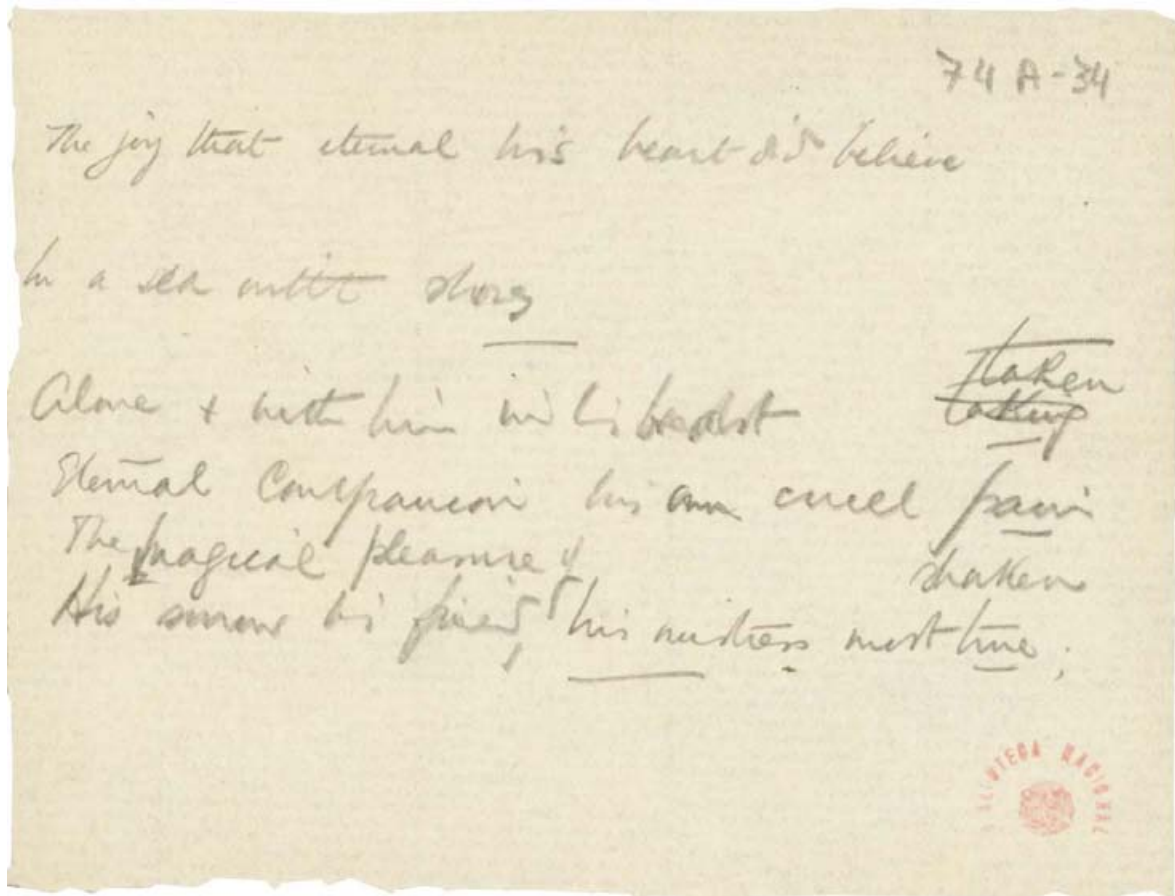 74 A-34
The joy that eternal his heart did believe
In a sea with shores
Alone & with him in his breast
taken
taking
Eternal Companion his own cruel pain
The magical pleasure of
shaken
His sorrow his friend, his mistress most true;
BLIOTECA NACIONAL